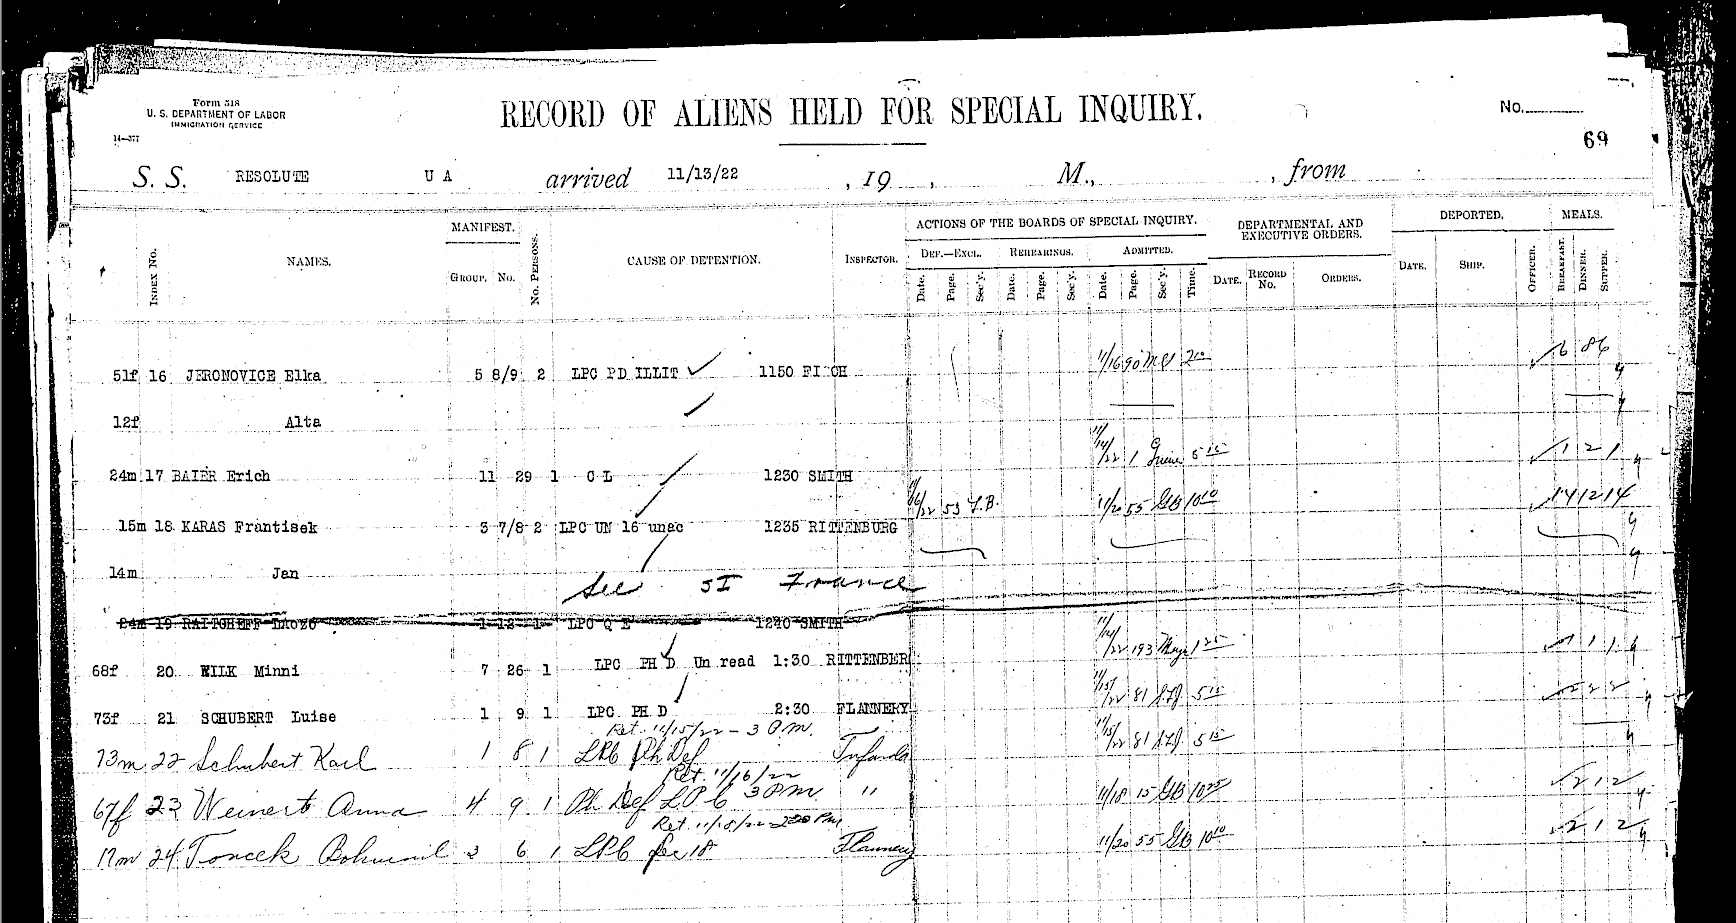 Form 518
U. S. DEPARTMENT OF LABOR
IMMIGRATION SERVICE
14—577
RECORD OF ALIENS HELD FOR SPECIAL INQUIRY.
No.
69
S. S. RESOLUTE U A arrived 11/13/22 , 19 , M., , from
INDEX NO. NAMES. MANIFEST. GROUP. NO. NO. PERSONS. CAUSE OF DETENTION. INSPECTOR. ACTIONS OF THE BOARDS OF SPECIAL INQUIRY. DEF.—EXCL. REHEARINGS. ADMITTED. DEPARTMENTAL AND EXECUTIVE ORDERS. DEPORTED. MEALS.
Date. Page. Sec'y. Date. Page. Sec'y. Date. Page. Sec'y. Time. DATE. RECORD No. ORDERS. DATE. SHIP. OFFICER. BREAKFAST. DINNER. SUPPER.
51f 16 JERONOVICE Elka 5 8/9 2 LPC PD ILLIT 1150 FINCH 11/16 90 2 10 6 86
12f Alta
24m 17 BAIER Erich 11 29 1 C L 1230 SMITH 11/14/22 1 5 15 1 2 1
15m 18 KARAS Frantisek 3 7/8 2 LPC UN 16 unac 1235 RITTENBURG 11/16/22 53 11/20 55 GB 10 10 14 12 14
14m Jan
See SI France
24m 19 RAITCHEFF 1 12 1 LPC Q E 1240 SMITH
68f 20 WILK Minni 7 26 1 LPC PH D Un read 1:30 RITTENBER 11/14/22 193 1 25 1 1
73f 21 SCHUBERT Luise 1 9 1 LPC PH D 2:30 FLANNERY 11/15/22 81 5 15 2 2 2
Ret. 11/15/22 – 3 PM.
73m 22 Schubert Karl 1 8 1 LPC Ph Def 11/15/22 81 5 15
Ret. 11/16/22
3 PM.
67f 23 Weinert Anna 4 9 1 Ph Def LPC " 11/18 15 GB 10 25 2 1 2
Ret 11/18/22 2 30 PM
17m 24 Toncek Bohumil 6 1 LPC Flannery 11/20 55 GB 10 10 2 1 2